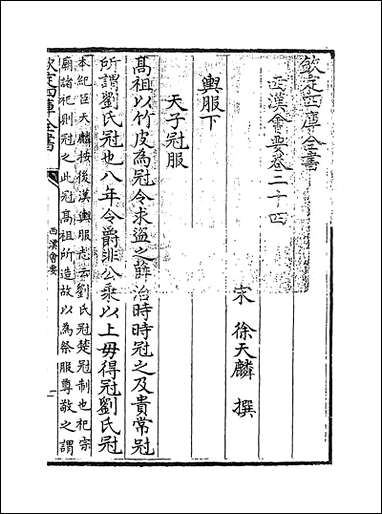 欽定四庫全書
西漢會要卷二十四
宋 徐天麟 撰
輿服下
天子冠服
髙祖以竹皮為冠令求盜之薛治時時冠之及貴常冠
所謂劉氏冠也八年令爵非公乘以上毋得冠劉氏冠
本紀臣天麟按後漢輿服志云劉氏冠楚冠制也祀宗
廟諸祀則冠之此冠髙祖所造故以為祭服尊敬之謂
欽定四庫全書
西漢會要